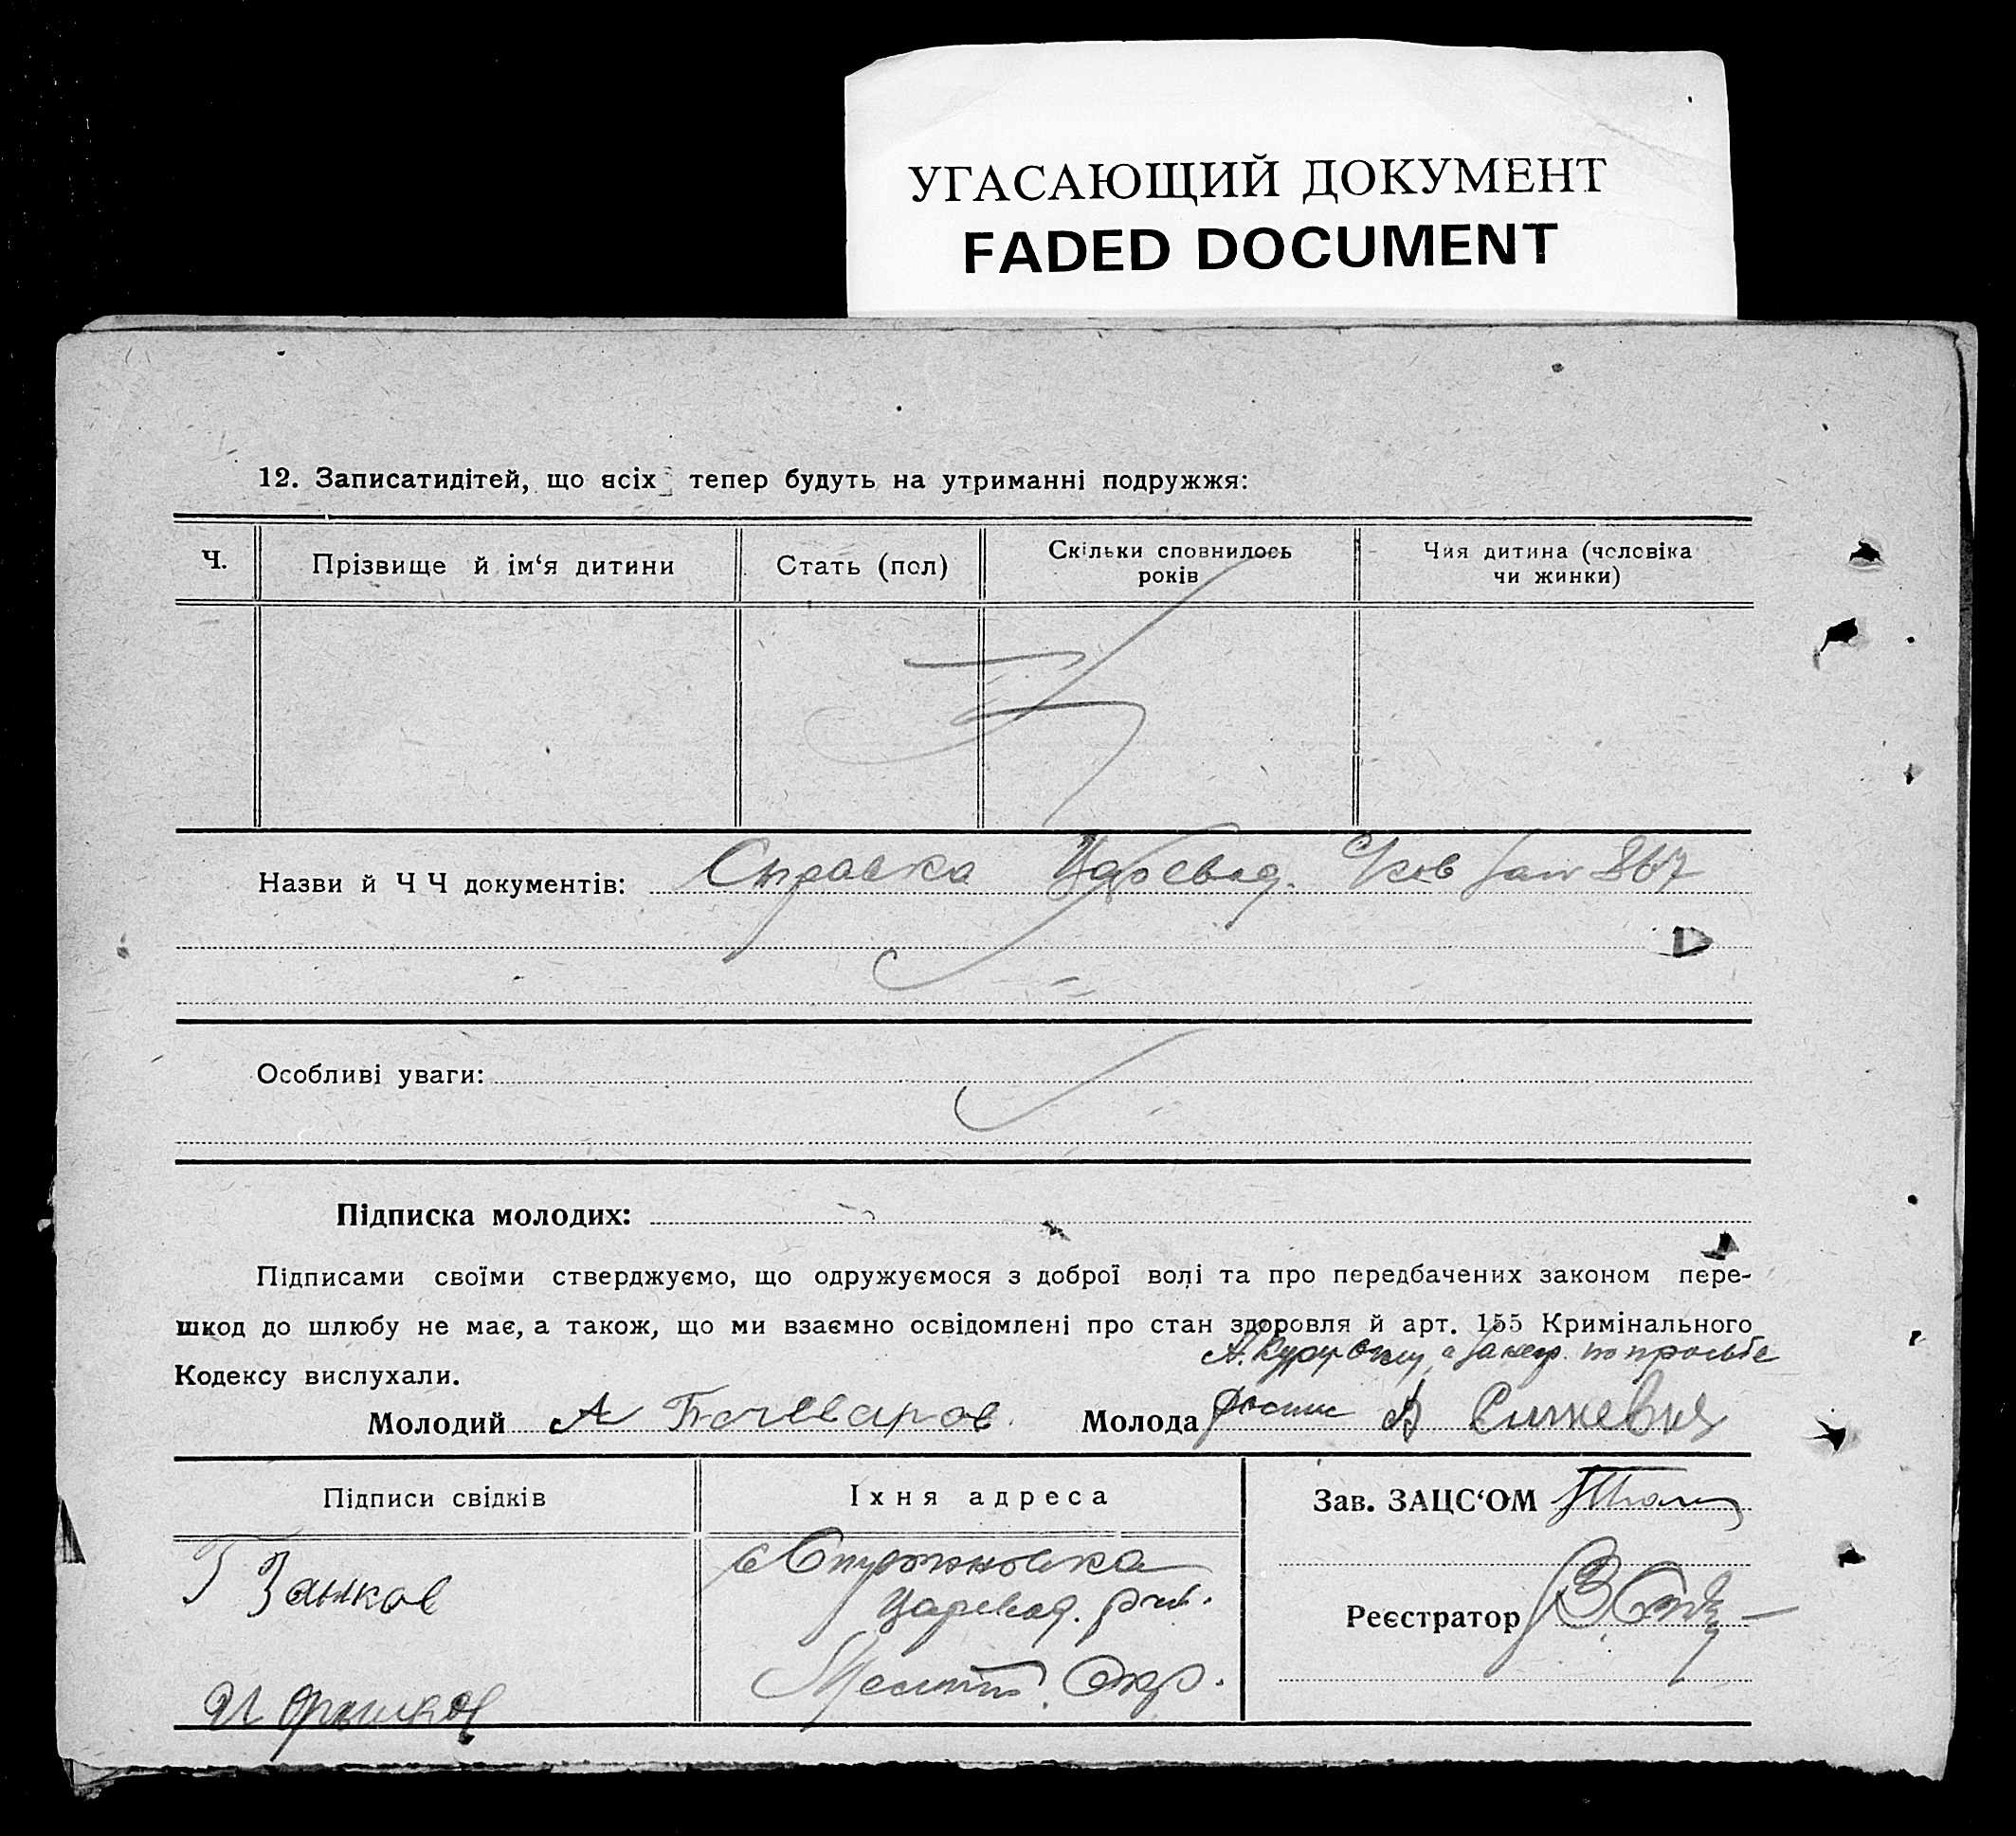 УГАСАЮЩИЙ ДОКУМЕНТ
FADED DOCUMENT
12. Записатидітей, що всіх тепер будуть на утриманні подружжя:
Ч.
Прізвище й ім‘я дитини
Стать (пол)
Скільки сповнилось
років
Чия дитина (чоловіка
чи жинки)
Назви й Ч Ч документів: Справка Царевод.
Особливі уваги:
Підписка молодих:
Підписами своїми стверджуємо, що одружуємося з доброї волі та про передбачених законом пере-
шкод до шлюбу не має, а також, що ми взаємно освідомлені про стан здоровля й арт. 155 Кримінального
по просьбе
Кодексу вислухали.
Молодий А
Молода
Підписи свідків
Їхня адреса
Зав. ЗАЦС‘ОМ
Г Занков
Царевод.
Реєстратор
Мелит. Окр.